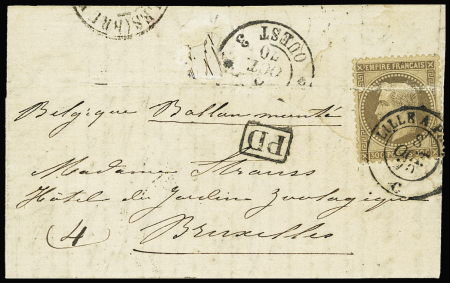 OUEST 3
OCT 70
EMPIRE FRANÇAIS
LILLE A
Belgique Ballon monté
PD
Madame Strauss
Hôtel du Jardin Zoologique
(4)
Bruxelles